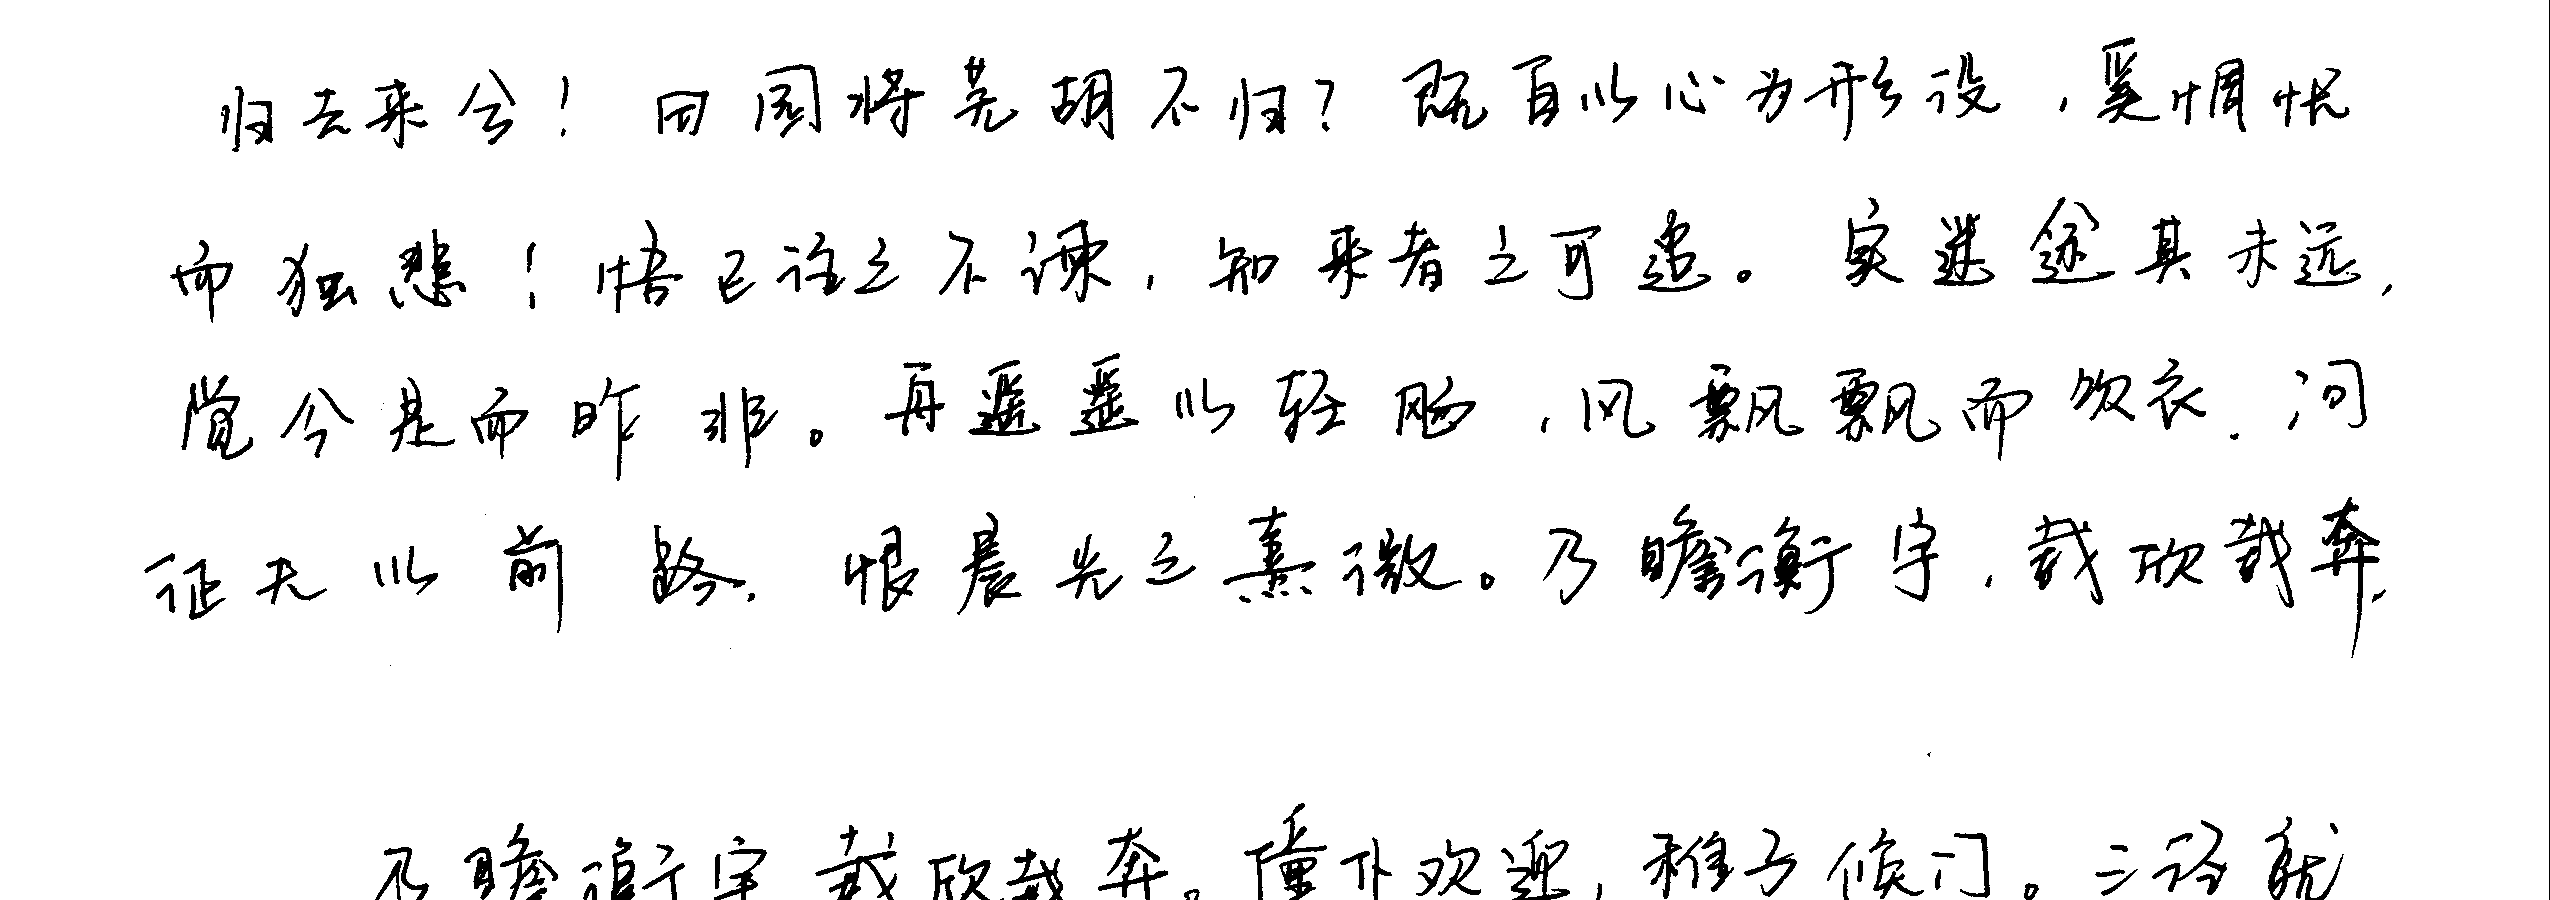 归去来兮！田园将芜胡不归？既自以心为形役，奚惆怅
而独悲！悟已往之不谏，知来者之可追。实迷途其未远，
觉今是而昨非。舟遥遥以轻飏，风飘飘而吹衣，问
征夫以前路，恨晨光之熹微。乃瞻衡宇，载欣载奔，
乃瞻衡宇载欣载奔。僮仆欢迎，稚子候门。三径就